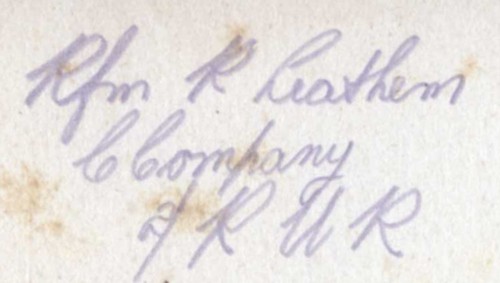 Rfm R Leathem
C Company
2/ R U R